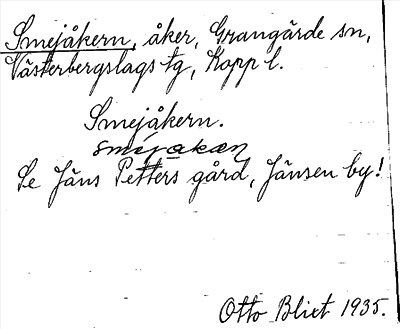 Smejåkern, åker, Grangärde sn,
Västerbergslags tg, Kopp l.
Smejåkern.
smejakan
Se Jäns Petters gård, Jänsen by!
Otto Blixt 1935.